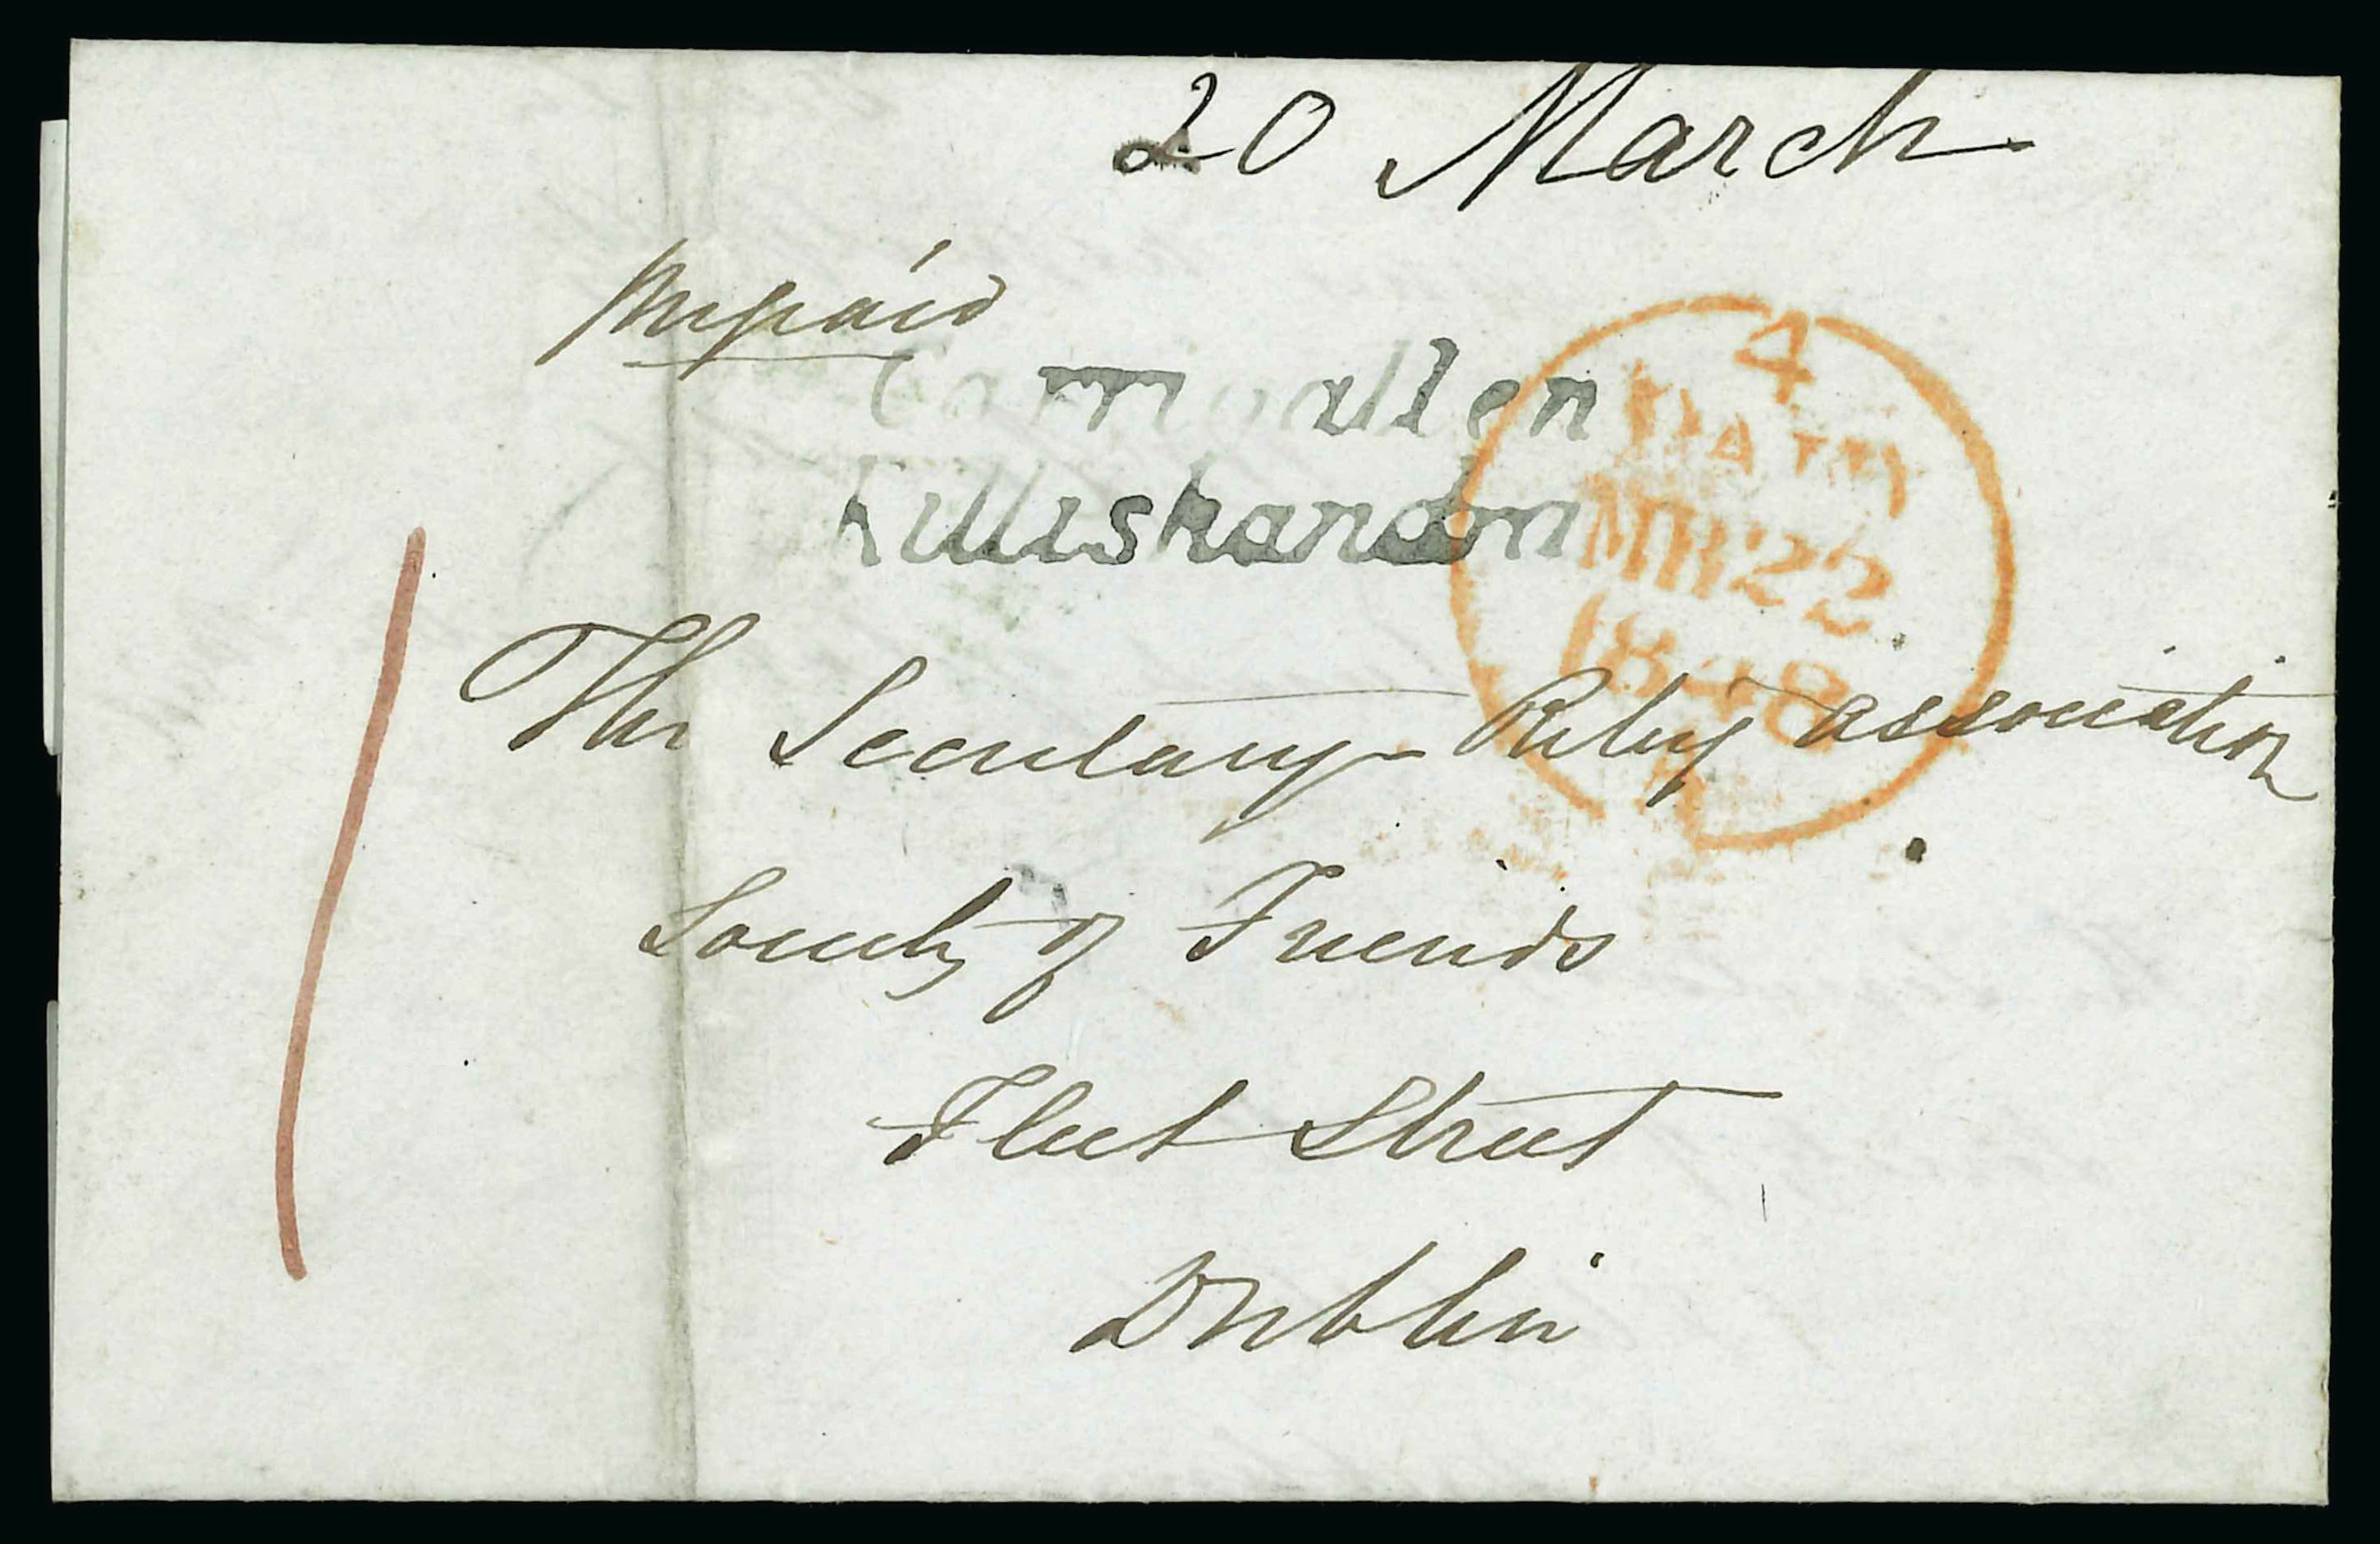 20 March
prepaid
Carrigallen
Killishandra
4
PAID
MR 22
1848
The Secretary Relief Association
Society of Friends
Fleet Street
Dublin